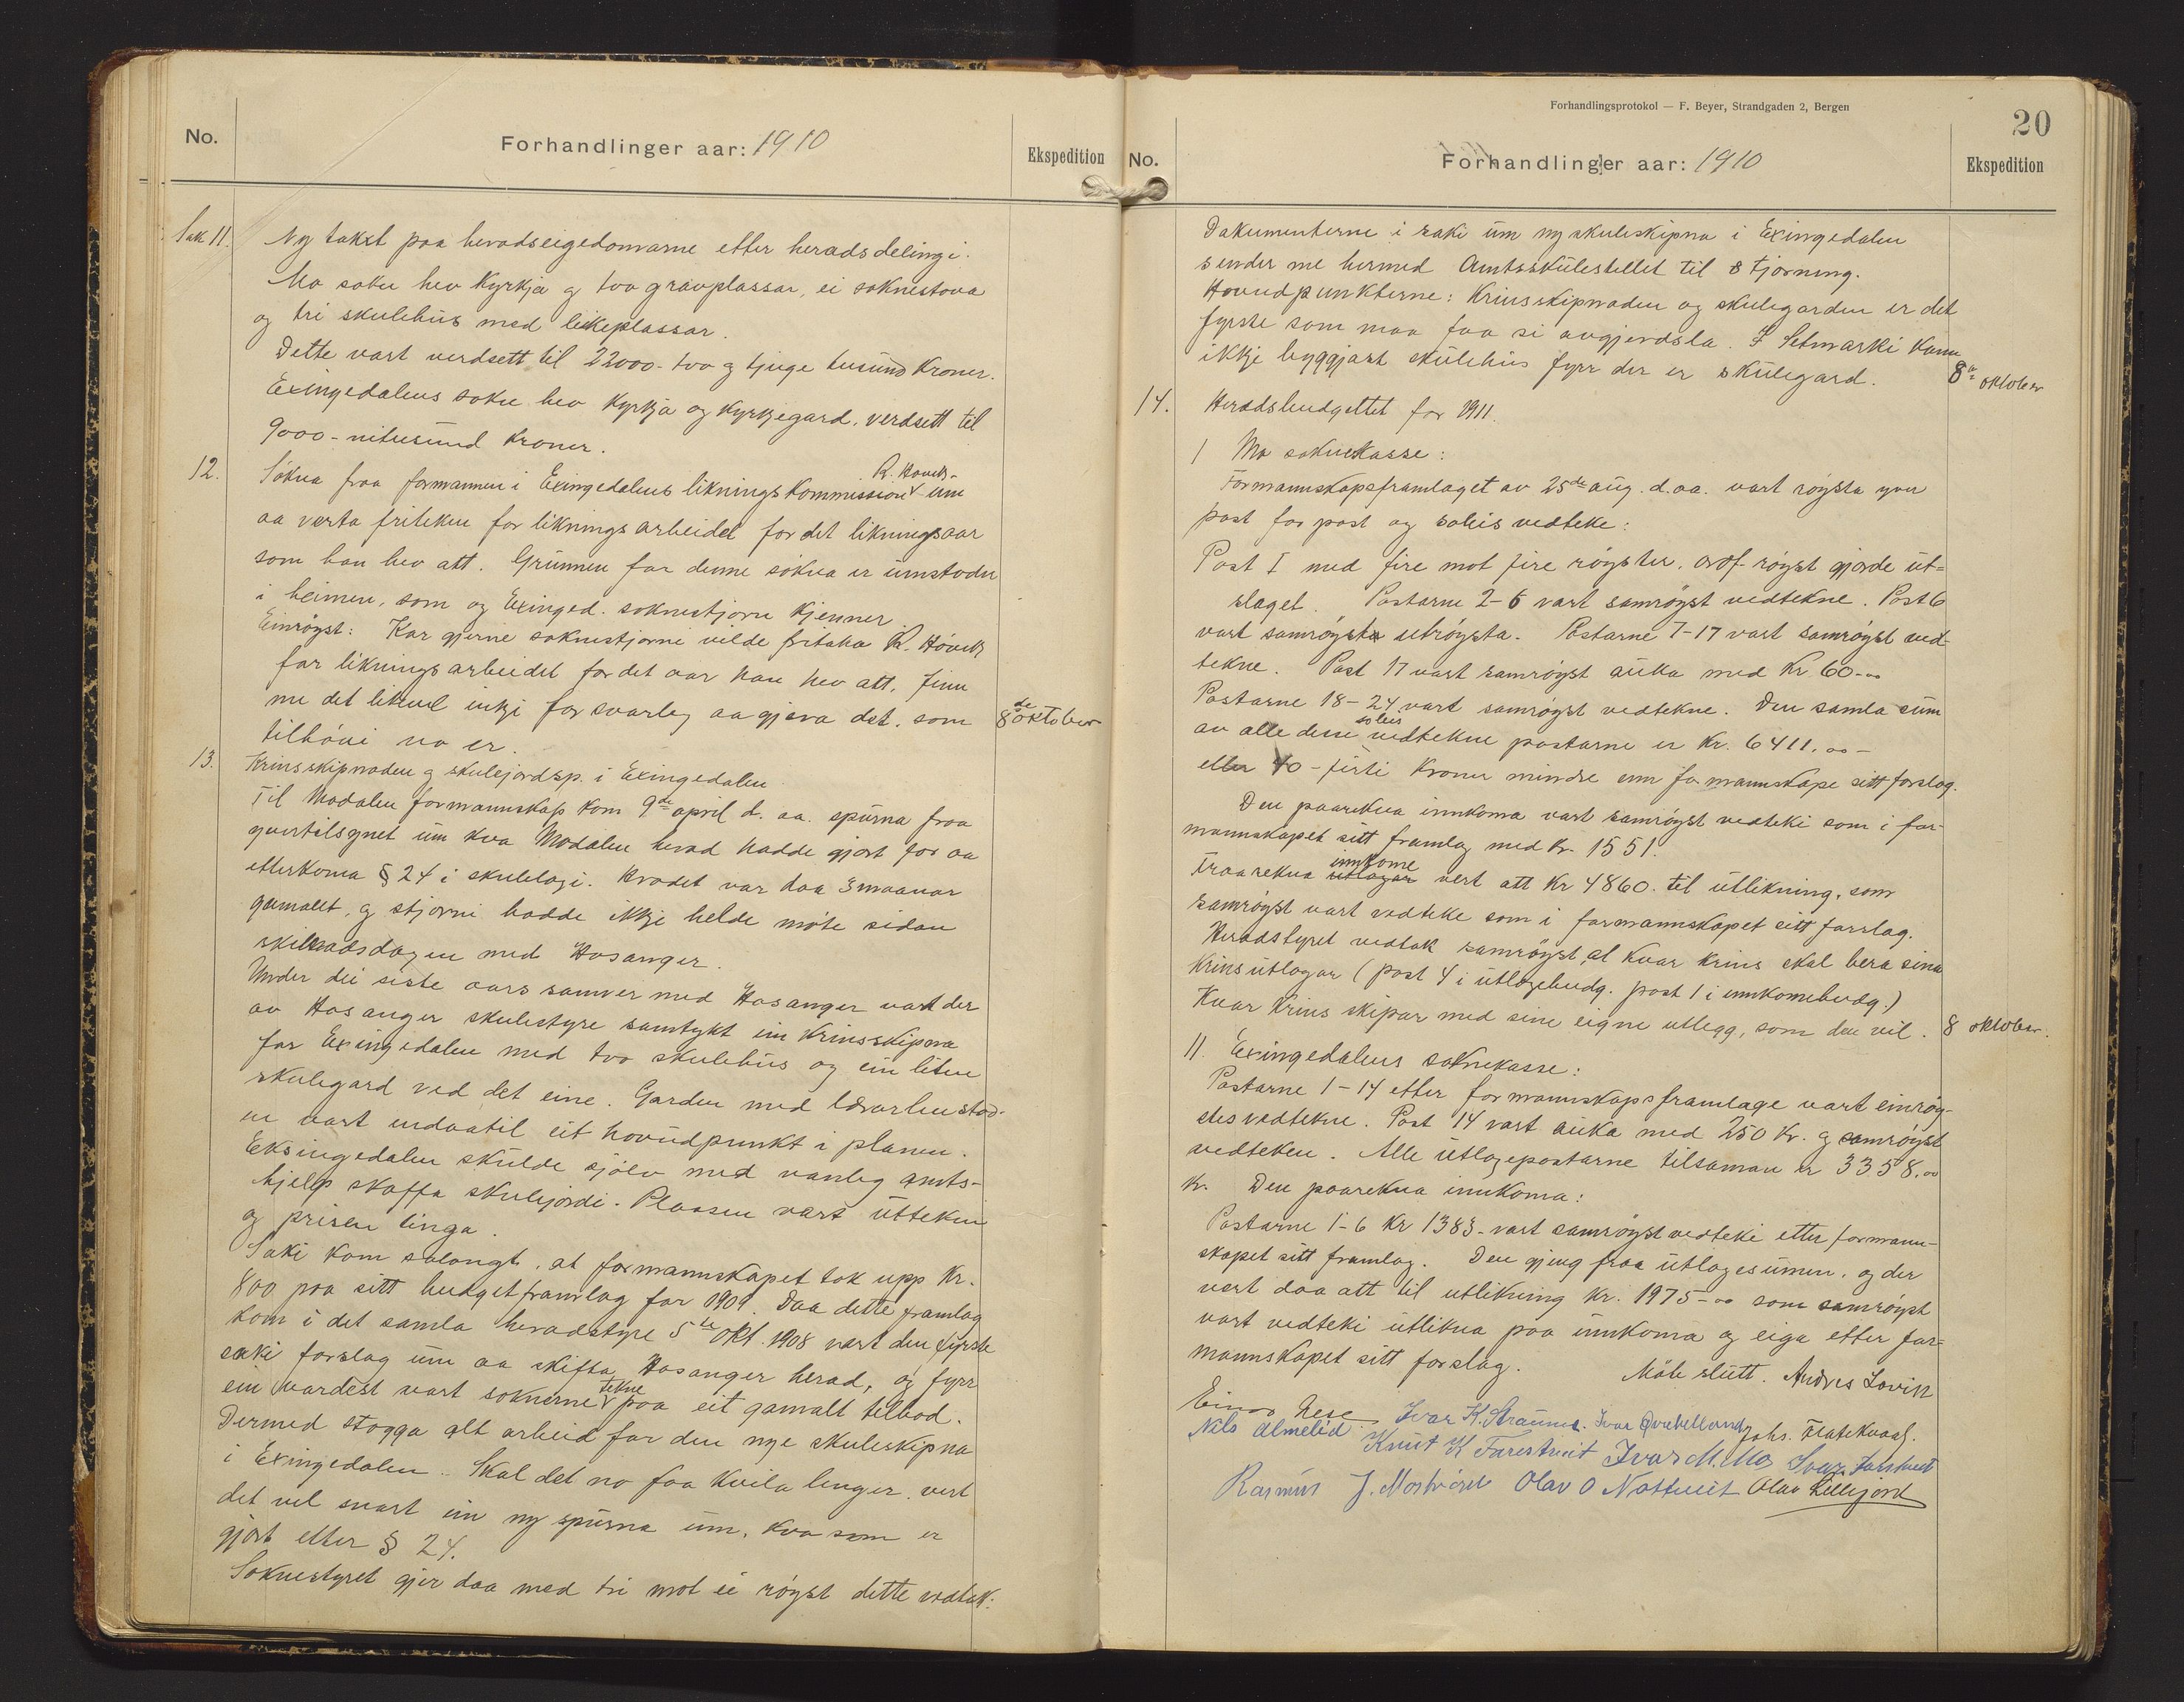 No.
Forhandlinger aar: 1910
Ekspedition
Sak 11. Ny takst paa heradseigedomarne etter heradsdelingi.
Mo sokn hev Kyrkja og tvo gravplassar, ei soknestova
og tri skulehus med leikeplassar.
Dette vart verdsett til 22000 - tvo og tjuge tusund Kroner.
Exingedalens sokn hev Kyrkja og Kyrkjegard, verdsett til
9000 - nitusund Kroner.
12. Søkna fraa formannen i Exingedalens likningskommission R. Høvik - um
aa verta friteken for likningsarbeidet for det likningsaar
som han hev att. Grunnen for denne søkna er umstodn
i heimen, som og Exinged. soknestjorn kjenner
Einrøyst: Kor gjerne soknestjorne vilde fritaka R. Høvik
for likningsarbeidet for det aar han hev att, finn
me det likevel inkje forsvarleg aa gjera det, som 8de oktober
tilhøvi no er.
13. Krinsskipnaden og skulejordsp. i Exingedalen
Til Modalen formannskap kom 9de april d. aa. spurna fraa
yvertilsynet um kva Modalen herad hadde gjort for aa
etterkoma § 24 i skulelogi. Hradet var daa 3 maanar
gamalt, og stjorni hadde ikkje helde møte sidan
skilnadsdagen med Hosanger.
Under dei siste aars samver med Hosanger vart der
av Hosanger skulestyre samtykt ein Krinsskipna
for Exingedalen med tvo skulehus og ein liten
skulegard ved det eine. Garden med lærarbustad-
en vart endaatil eit hovudpunkt i planen.
Eksingedalen skulde sjølv med vanleg amts-
hjelp skaffa skulejordi. Plassen vart utteken
og prisen tinga.
Saki kom solangt, at formannskapet tok upp Kr.
800 paa sitt budgetframlag for 1909. Daa dette framlag
kom i det samla heradstyre 5te okt. 1908 vart den fyrste
saki forslag um aa skifta Hosanger herad, og fyrr
ein vardest vart soknerne tekne paa eit gamalt tilbod.
Dermed stogga alt arbeid for den nye skuleskipna
i Exingedalen. Skal det no faa kvila lenger, vert
det vel snart ein ny spurna um, kva som er
gjort etter § 24.
Soknestyret gjer daa med tri mot ei røyst dette vedtak:
Forhandlingsprotokol — F. Beyer, Strandgaden 2, Bergen
20
No.
Forhandlinger aar: 1910
Ekspedition
Dakumenterne i saki um ny skuleskipna i Exingedalen
sender me hermed Amtsskulestellet til
Hovudpunkterne: Krinsskipnaden og skulegarden er det
fyrste som maa faa si avgjerdsla. I Setmarki kann
ikkje byggjast skulehus fyrr der er skulegard. 8de oktober
14. Heradsbudgettet for 1911.
1 Mo soknekasse:
Formannskapsframlaget av 25de aug. d. aa. vart røysta yver
post for post og soleis vedteke:
Post I med fire mot fire røyster. ordf. røyst gjorde ut-
slaget. Postarne 2-6 vart samrøyst vedtekne. Post 6
vart samrøyst utrøysta. Postarne 7-17 vart samrøyst ved-
tekne. Post 17 vart samrøyst auka med Kr 60-oo
Postarne 18-24 vart samrøyst vedtekne. Den samla sum
av alle desse soleis vedtekne postarne er Kr. 6411.oo -
eller 40 - fürti Kroner mindre enn formannskape sitt forslag.
Den paarekna innkoma vart samrøyst vedteki som i for-
mannskapet sitt framlag med Kr. 1551.
Fraarekna innkome utlogar vert att Kr 4860. til utlikning, som
samrøyst vart vedteke som i formannskapet sitt forslag.
Heradstyret vedtok samrøyst, at kvar krins skal bera sine
Krinsutlogar (post 4 i utlogebudg. post 1 i innkomebudg.)
Kvar Krins skipar med sine eigne utlegg, som den vil. 8 oktober.
11. Exingedalens soknekasse:
Postarne 1-14 etter formannskapsframlage vart einrøy-
stes vedtekne. Post 14 vart auka med 250 Kr. og samrøyst
vedteken. Alle utlogepostarne tilsaman er 3358.oo
Kr. Den paarekna innkoma:
Postarne 1-6 Kr 1383 - vart samrøyst vedteki etter formann-
skapet sitt framlag. Den gjeng fraa utlogesumen, og der
vert daa att til utlikning Kr. 1975-oo som samrøyst
vart vedteki utlikna paa innkoma og eiga etter for-
mannskapet sitt forslag. Møte slutt. Andres Lovik
Einar Nese Ivar K. Straume. Ivar Qvitelland Johs. Flatekvaal.
Nils Almelid Knut K Farestveit Ivar M. Mo Ivar Farestveit
Rasmus J. Olav O Nottveit Olav Lillejord